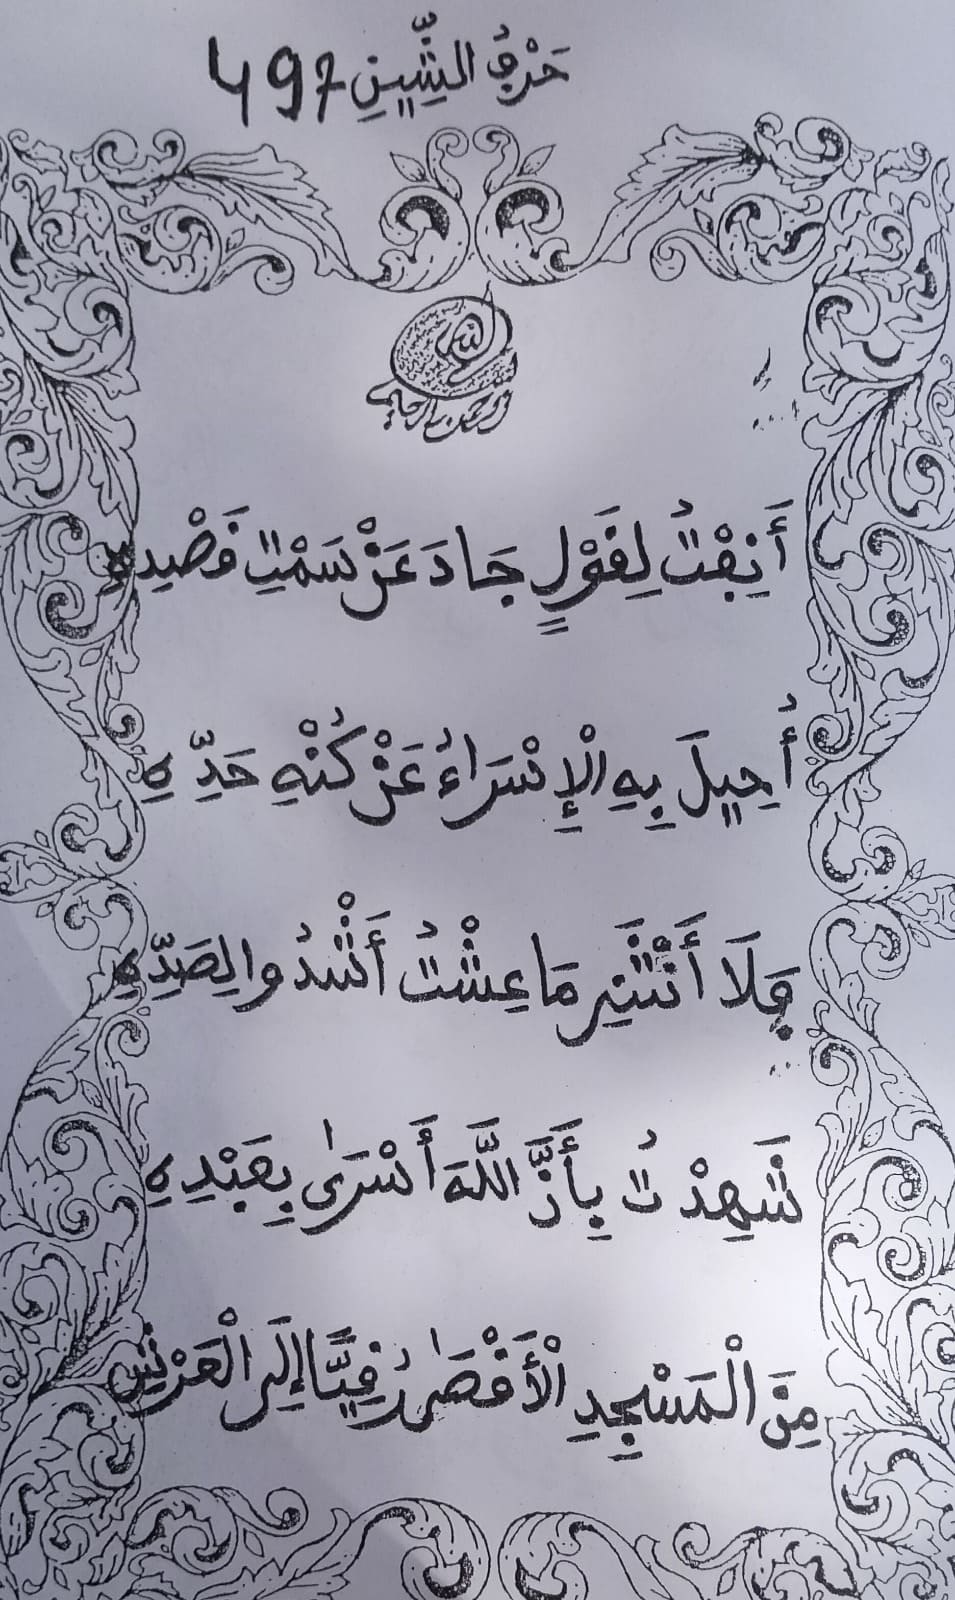 حَرْفُ الشِّينِ 497
أَنِفْتُ لِقَوْلٍ حَادَ عَنْ سَمْتِ قَصْدِهِ
أُحِيلَ بِهِ الْإِسْرَاءُ عَنْ كُنْهِ حَدِّهِ
فَلَا أَنْثَنِي مَا عِشْتُ أَشْدُوا لِصَدِّهِ
شَهِدْتُ بِأَنَّ اللَّهَ أَسْرَى بِعَبْدِهِ
مِنَ الْمَسْجِدِ الْأَقْصَى رُقِيًّا إِلَى الْعَرْشِ